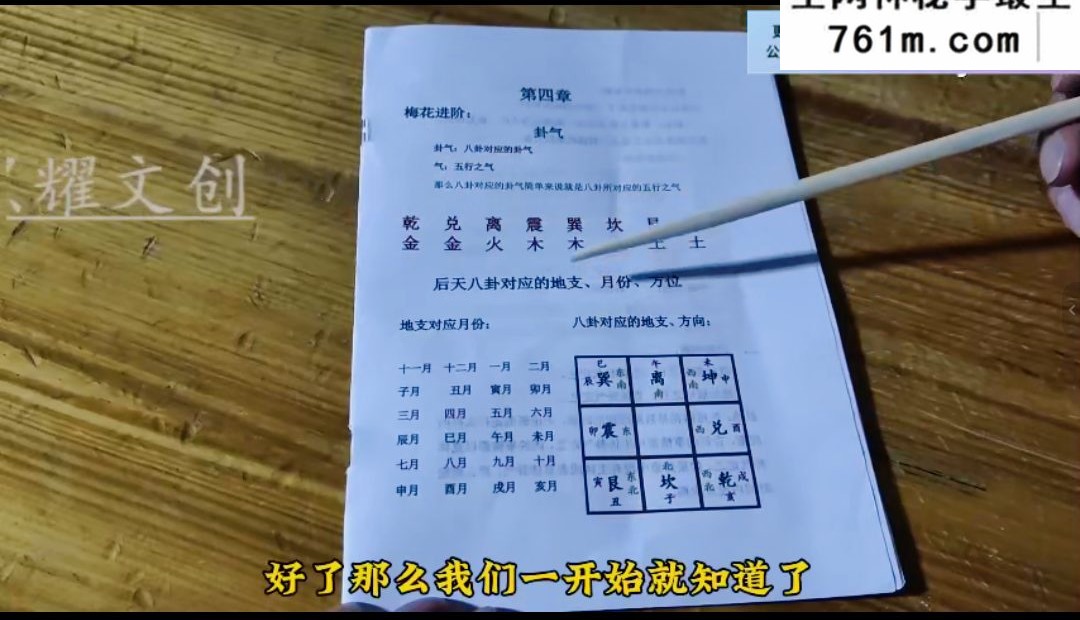 761m.com
耀文创
第四章
梅花进阶：
卦气
卦气：八卦对应的卦气
气：五行之气
那么八卦对应的卦气简单来说就是八卦所对应的五行之气
乾 兑 离 震 巽 坎
金 金 火 木 木 土 土
后天八卦对应的地支、月份、方位
地支对应月份：
八卦对应的地支、方向：
十一月 十二月 一月 二月
子月 丑月 寅月 卯月
三月 四月 五月 六月
辰月 巳月 午月 未月
七月 八月 九月 十月
申月 酉月 戌月 亥月
巳 午 未
辰 巽 东南 离 南 西南 坤 申
卯 震 东 西 兑 酉
寅 艮 东北 丑 北 坎 子 西北 乾 戌 亥
好了那么我们一开始就知道了